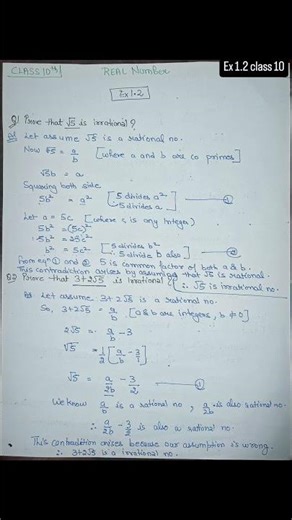 Ex 1.2 class 10
CLASS 10th
REAL Number
Ex 1.2
Q1 Prove that √5 is irrational?
Sol Let assume √5 is a rational no.
Now √5 = a/b [where a and b are co primes]
√5b = a
Squaring both side
5b² = a² [5 divides a² ∴ 5 divides a] — ①
Let a = 5c [where c is any integer]
5b² = (5c)²
5b² = 25c²
b² = 5c² [5 divides b² ∴ 5 divides b also] — ②
From eqn ① and ② 5 is common factor of both a & b.
This contradiction arises by assuming that √5 is rational.
∴ √5 is irrational no.
Q2 Prove that 3+2√5 is irrational?
Let assume 3+2√5 is a rational no.
So, 3+2√5 = a/b [a & b are integers, b ≠ 0]
2√5 = a/b − 3
√5 = 1/2 [a/b − 3/1]
√5 = a/2b − 3/2 — ①
We know a/b is a rational no, a/2b is also rational no.
∴ a/2b − 3/2 is also a rational no.
This contradition arises because our assumption is wrong.
∴ 3+2√5 is a irrational no.